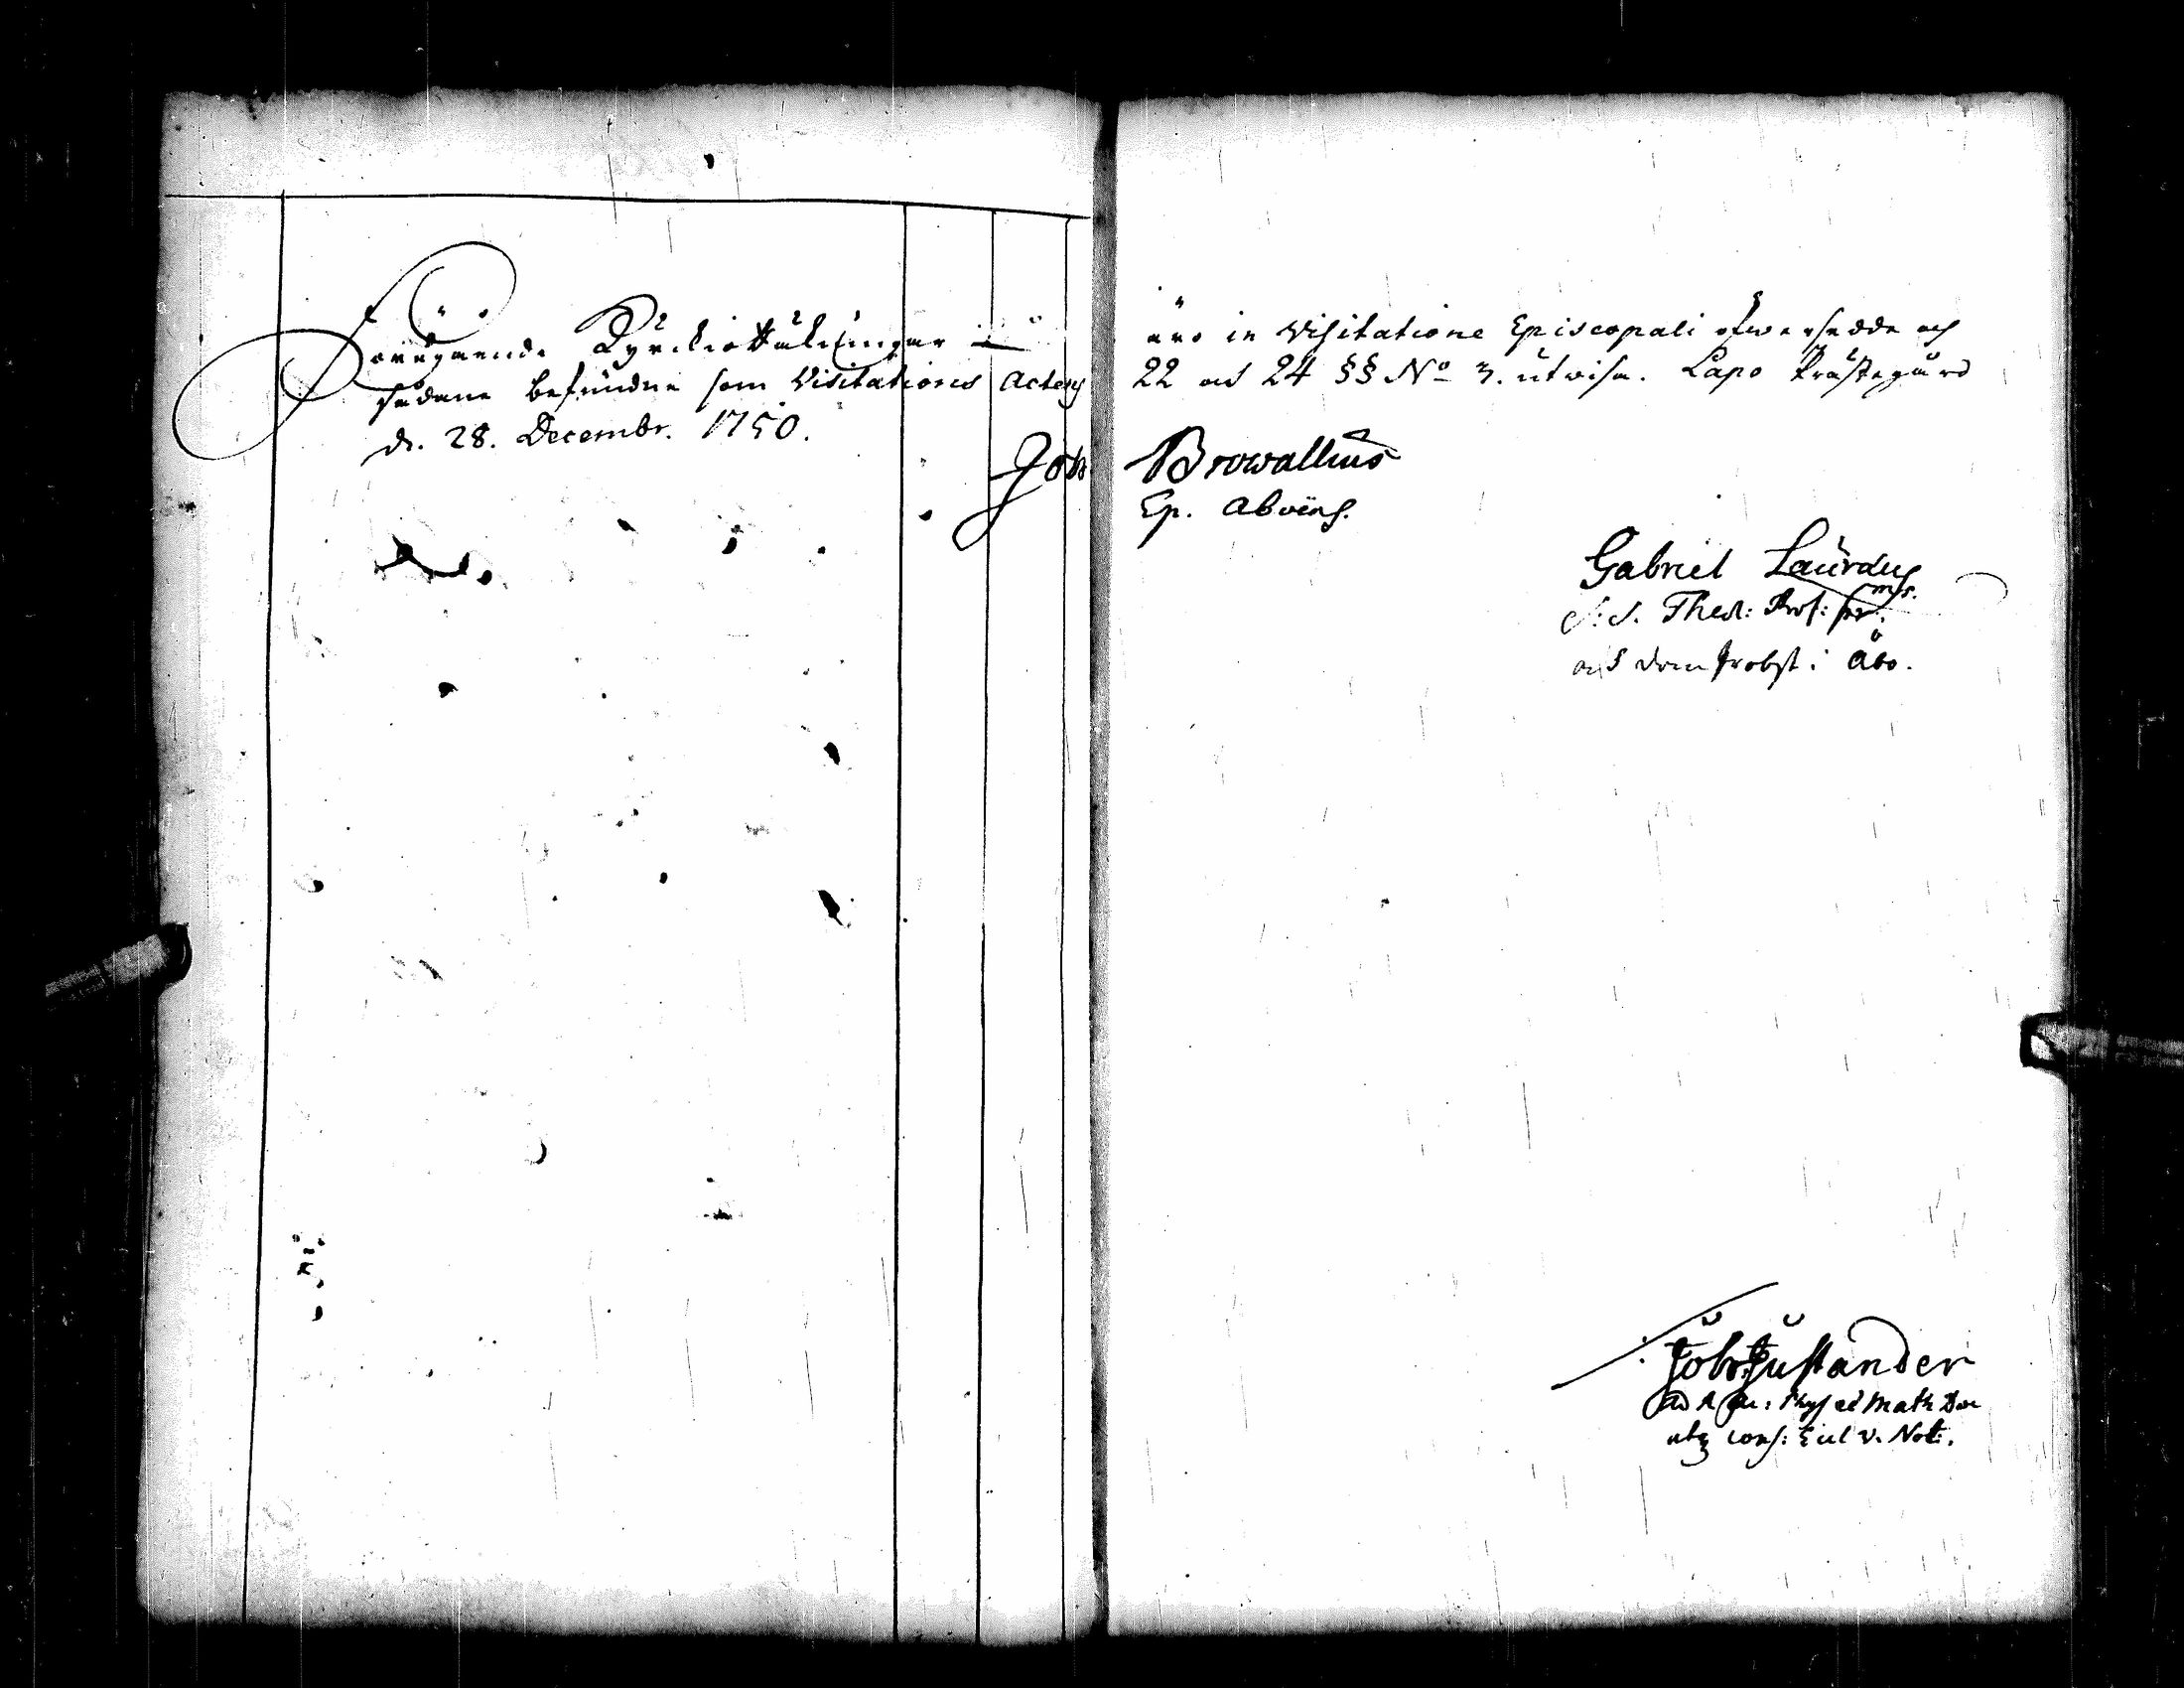 Föregående Kyrckioräkningar äro in Visitatione Episcopali öfwersedde och
sådane befundne som Visitationes Actens 22 och 24 §§ No 3. utwisa. Lapo Prästegård
d. 28. Decembr. 1750.
Joh Browallius
Ep. Aboëns.
Gabriel Lauræus
S. S. Theol: Prof: pr:
och Dom Probst i Åbo.
Joh. Justander
Phys et Math Doc
atq cons: Eccl v. Not:.